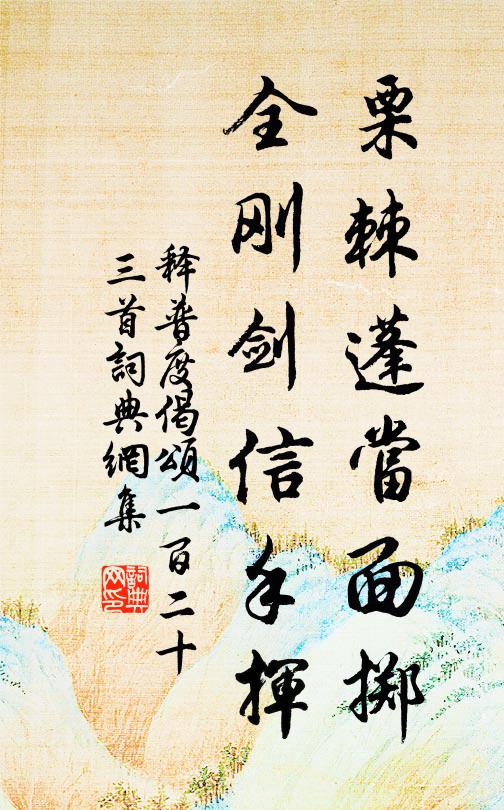 栗棘蓬當面掷
全刚剑信手揮
释普度偈頌一百二十
三首詞典網集
詞典网印